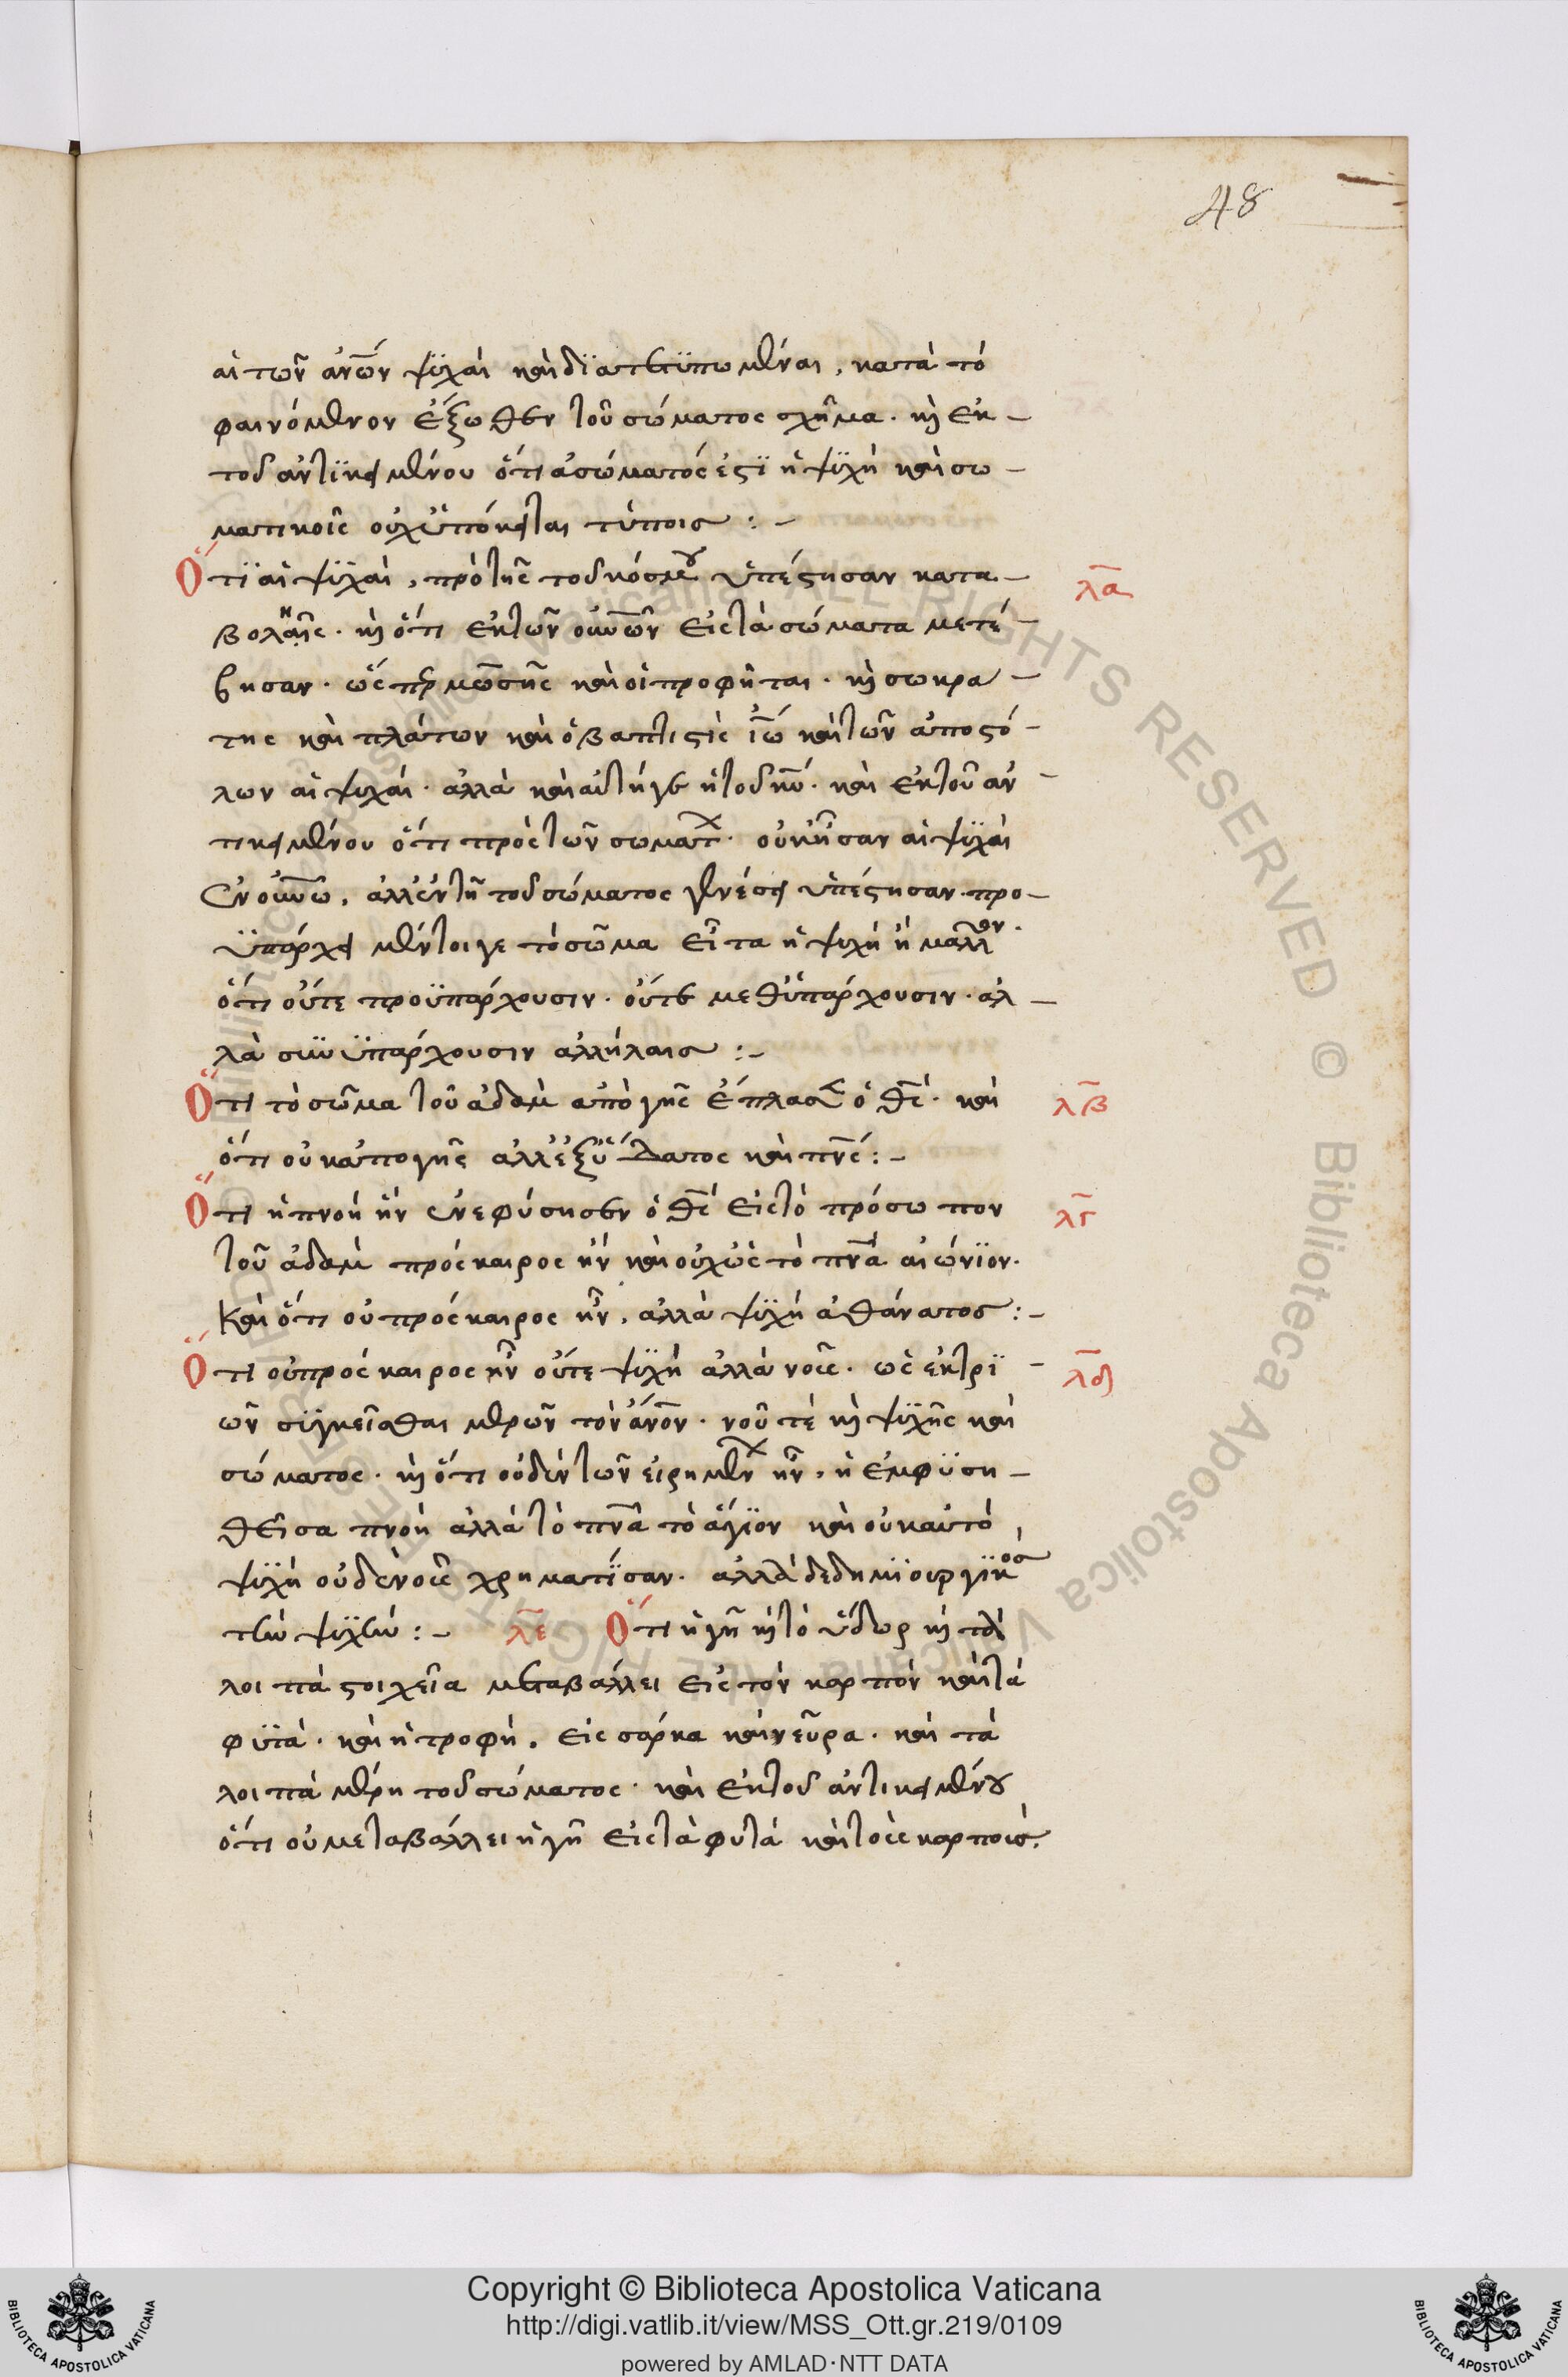 48
αἱ τῶν ἀν̅ω̅ν ψϋχαὶ καὶ διατετϋπωμέναι, κατὰ τὸ
φαινόμενον ἔξωθεν τοῦ σώματος σχῆμα. κ̀ ἐκ –
τοῦ ἀντϊκειμένου ὅτι ἀσώματός ἐστϊ ἡ ψϋχὴ καὶ σω –
ματικοῖς οὐχ ὑπόκειται τύποις : –
Ὅτϊ αἱ ψϋχαὶ, πρὸ τῆς τοῦ κόσμου ὑπέστησαν κατα –
βολαῆς. κ̀ ὅτι ἐκ τῶν οὐν̅ῶν εἰς τὰ σώματα μετέ –
βησαν. ὥσπερ μω̅σῆς καὶ οἱ προφῆται. κ̀ σωκρα –
της καὶ πλάτων καὶ ὁ βαπτιστὴς ἰ̅ώ καὶ τῶν ἀποστό –
λων αἱ ψυχαί. ἀλλὰ καὶ αὐτήγε ἡ τοῦ κ̅υ. καὶ ἐκ τοῦ ἀν –
τικειμένου ὅτι πρὸς τῶν σωμάτων. οὐκ ἦσαν αἱ ψϋχαὶ
ἐν οὐν̅ῶ, ἀλλ' ἐν τῆ τοῦ σώματος γενέσει ὑπέστησαν. προ –
ϋπάρχει μέντοιγε τὸ σῶμα εἶτα ἡ ψυχή ἢ μᾶλλον.
ὅτι οὔτε προϋπάρχουσιν. οὔτε μεθϋπάρχουσιν. ἀλ –
λὰ συνϋπάρχουσιν ἀλλήλαις : –
Ὅτι τὸ σῶμα τοῦ ἀδὰμ ἀπὸ γῆς ἔπλασεν ὁ θ̅ς. καὶ
ὅτι οὐκ ἀπὸ γῆς ἀλλ' ἐξ ὕδατος καὶ πν̅ς : –
Ὅτι ἡ πνοὴ ἣν ἐνεφύσησεν ὁ θ̅ς εἰς τὸ πρόσωπον
τοῦ ἀδὰμ πρόσκαιρος ἦν καὶ οὐχ ὡς τὸ πν̅α αἰώνϊον.
Καὶ ὅτι οὐ πρόσκαιρος ἦν, ἀλλὰ ψϋχὴ ἀθάνατος : –
Ὅτι οὐ πρόσκαιρος ἦν οὔτε ψϋχὴ ἀλλὰ νοῦς. ὡς ἐκ τρϊ –
ῶν συγκεῖσθαι μερῶν τὸν ἄν̅ο̅ν. νοῦ τέ κ̀ ψϋχῆς καὶ
σώματος. κ̀ ὅτι οὐδὲν τῶν εἰρημένων ἦν, ἡ ἐμφϋση –
θεῖσα πνοὴ ἀλλὰ τὸ πν̅α τὸ ἅγϊον καὶ οὐκ αὐτὸ
ψϋχὴ οὐδὲ νοῦς χρηματίσαν. ἀλλὰ δεδημϊουργϊκὸς
τὴν ψϋχήν : – λ̅ε Ὅτι ἡ γῆ κ̀ τὸ ὕδωρ κ̀ τὰ
λοιπὰ στοιχεῖα μεταβάλλει εἰς τὸν καρπὸν καὶ τὰ
φϋτὰ. καὶ ἡ τροφὴ. εἰς σάρκα καὶ νεῦρα. καὶ τὰ
λοιπὰ μέρη τοῦ σώματος. καὶ ἐκ τοῦ ἀντικειμένου
ὅτι οὐ μεταβάλλει ἡ γῆ εἰς τὰ φυτὰ καὶ τοὺς καρποὺς.
λ̅α
λ̅β
λ̅γ
λ̅δ
© Biblioteca Apostolica Vaticana ALL RIGHTS RESERVED
Copyright © Biblioteca Apostolica Vaticana
http://digi.vatlib.it/view/MSS_Ott.gr.219/0109
powered by AMLAD·NTT DATA
BIBLIOTECA APOSTOLICA VATICANA
BIBLIOTECA APOSTOLICA VATICANA